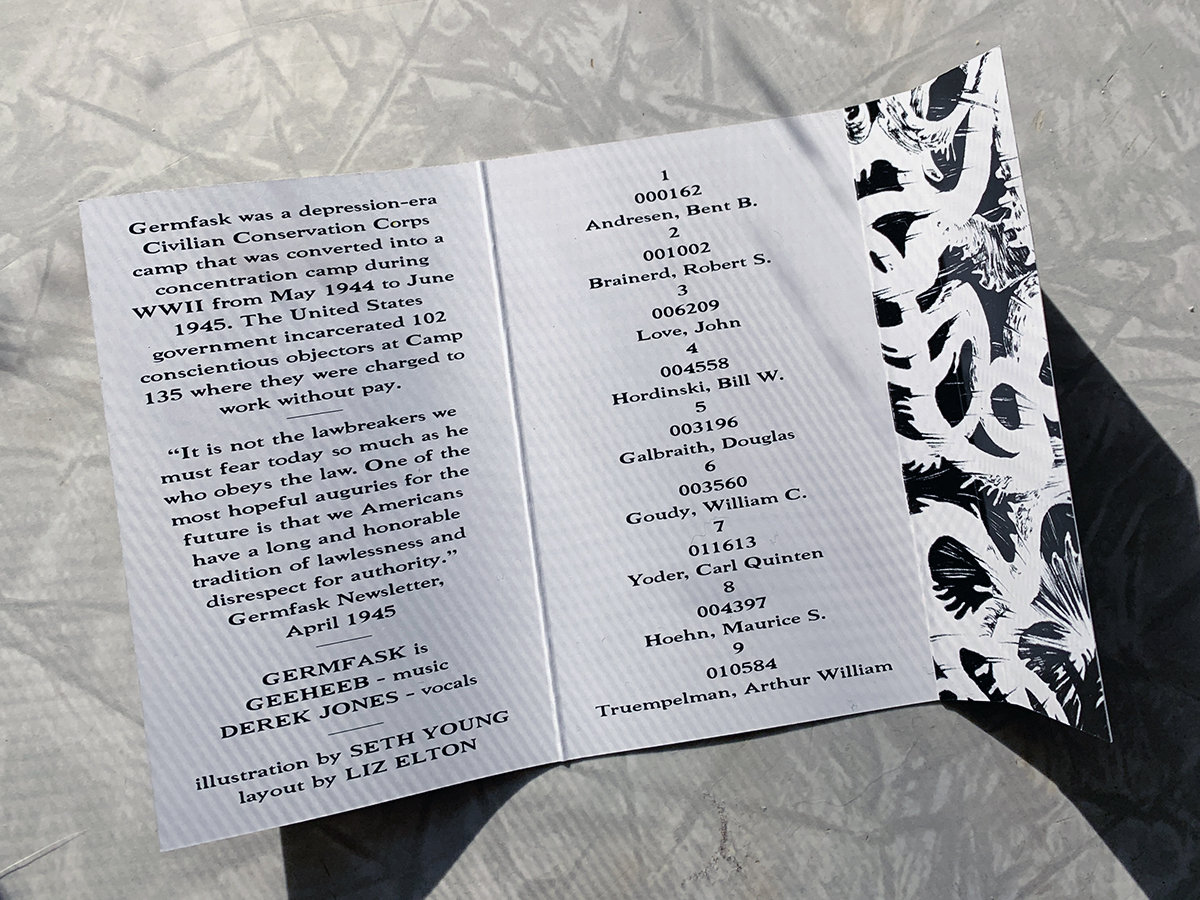 Germfask was a depression-era
Civilian Conservation Corps
camp that was converted into a
concentration camp during
WWII from May 1944 to June
1945. The United States
government incarcerated 102
conscientious objectors at Camp
135 where they were charged to
work without pay.
“It is not the lawbreakers we
must fear today so much as he
who obeys the law. One of the
most hopeful auguries for the
future is that we Americans
have a long and honorable
tradition of lawlessness and
disrespect for authority.”
Germfask Newsletter,
April 1945
GERMFASK is
GEEHEEB - music
DEREK JONES - vocals
illustration by SETH YOUNG
layout by LIZ ELTON
1
000162
Andresen, Bent B.
2
001002
Brainerd, Robert S.
3
006209
Love, John
4
004558
Hordinski, Bill W.
5
003196
Galbraith, Douglas
6
003560
Goudy, William C.
7
011613
Yoder, Carl Quinten
8
004397
Hoehn, Maurice S.
9
010584
Truempelman, Arthur William